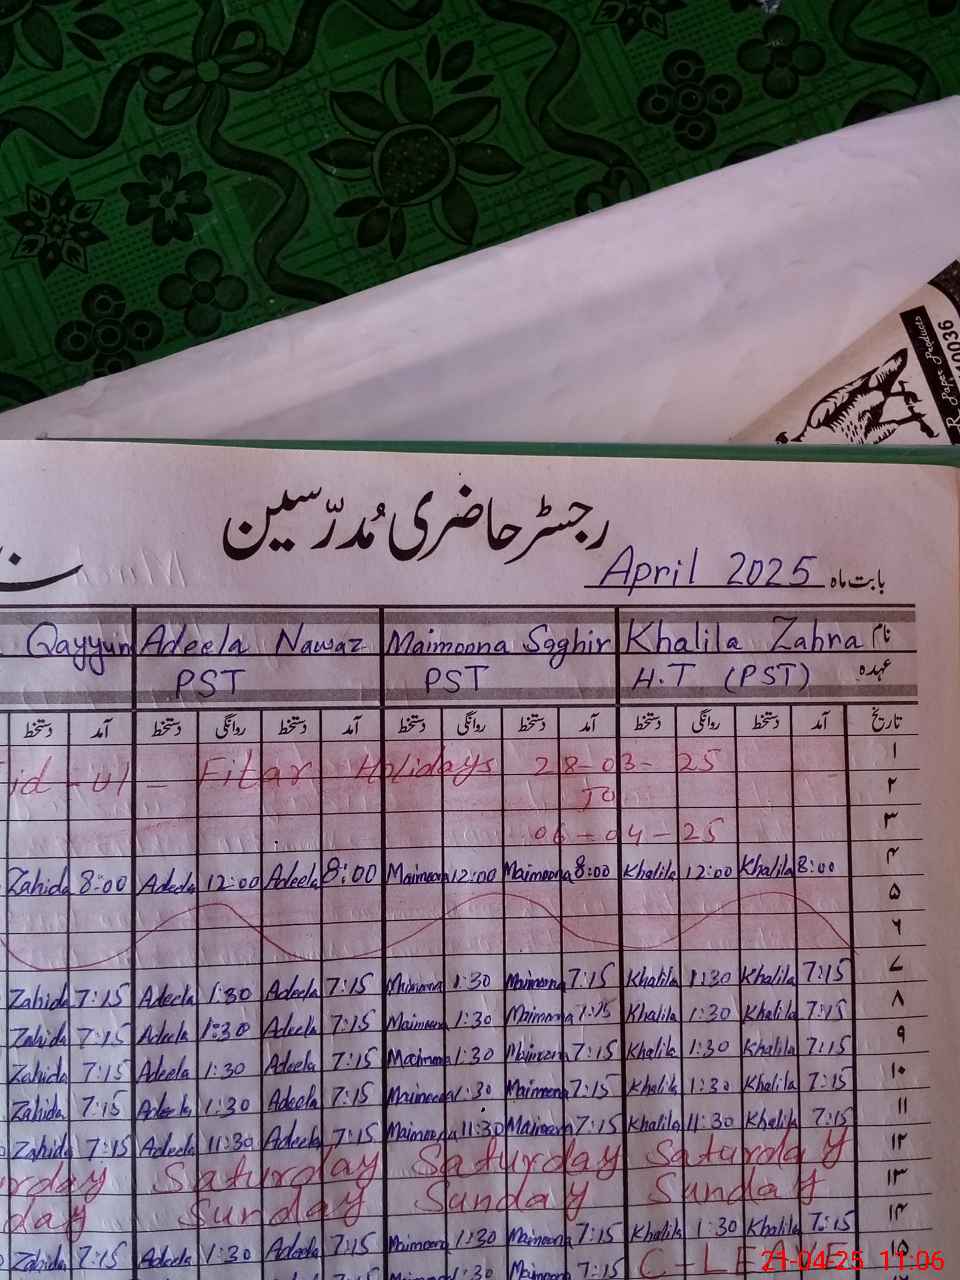 R Paper Products
40036
رجسٹر حاضری مُدرّسین
بابت ماہ April 2025
نام Khalila Zahra Maimoona Saghir Adeela Nawaz Qayyum
عہدہ H.T (PST) PST PST
تاریخ آمد دستخط روانگی دستخط آمد دستخط روانگی دستخط آمد دستخط روانگی دستخط آمد دستخط
۱ id-ul-Fitar Holidays 28-03-25
۲ TO
۳ 06-04-25
۴ 8:00 Khalila 12:00 Khalila 8:00 Maimoona 12:00 Maimoona 8:00 Adeela 12:00 Adeela 8:00 Zahida
۵
۶
۷ 7:15 Khalila 1:30 Khalila 7:15 Maimoona 1:30 Maimoona 7:15 Adeela 1:30 Adeela 7:15 Zahida
۸ 7:15 Khalila 1:30 Khalila 7:15 Maimoona 1:30 Maimoona 7:15 Adeela 1:30 Adeela 7:15 Zahida
۹ 7:15 Khalila 1:30 Khalila 7:15 Maimoona 1:30 Maimoona 7:15 Adeela 1:30 Adeela 7:15 Zahida
۱۰ 7:15 Khalila 1:30 Khalila 7:15 Maimoona 1:30 Maimoona 7:15 Adeela 1:30 Adeela 7:15 Zahida
۱۱ 7:15 Khalila 11:30 Khalila 7:15 Maimoona 11:30 Maimoona 7:15 Adeela 11:30 Adeela 7:15 Zahida
۱۲ Saturday Saturday Saturday rday
۱۳ Sunday Sunday Sunday day
۱۴ 7:15 Khalila 1:30 Khalila 7:15 Maimoona 1:30 Maimoona 7:15 Adeela 1:30 Adeela 7:15 Zahida
۱۵ C-LEAVE 7:15
21-04-25 11:06